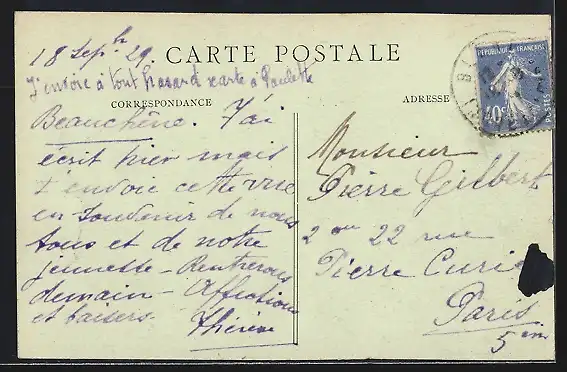 18 Sepbre 29.
CARTE POSTALE
J'envoie à tout hasard carte à Paulette
CORRESPONDANCE
ADRESSE
REPUBLIQUE FRANÇAISE
40c
POSTES
Beauchêne. J'ai
écrit hier mais
t'envoie cette vue
en souvenir de nous
tous et de notre
jeunesse - Rentrerons
demain - Affections
et baisers.
Thérèse
Monsieur
Pierre Gilbert
2 ou 22 rue
Pierre Curie
Paris
5em